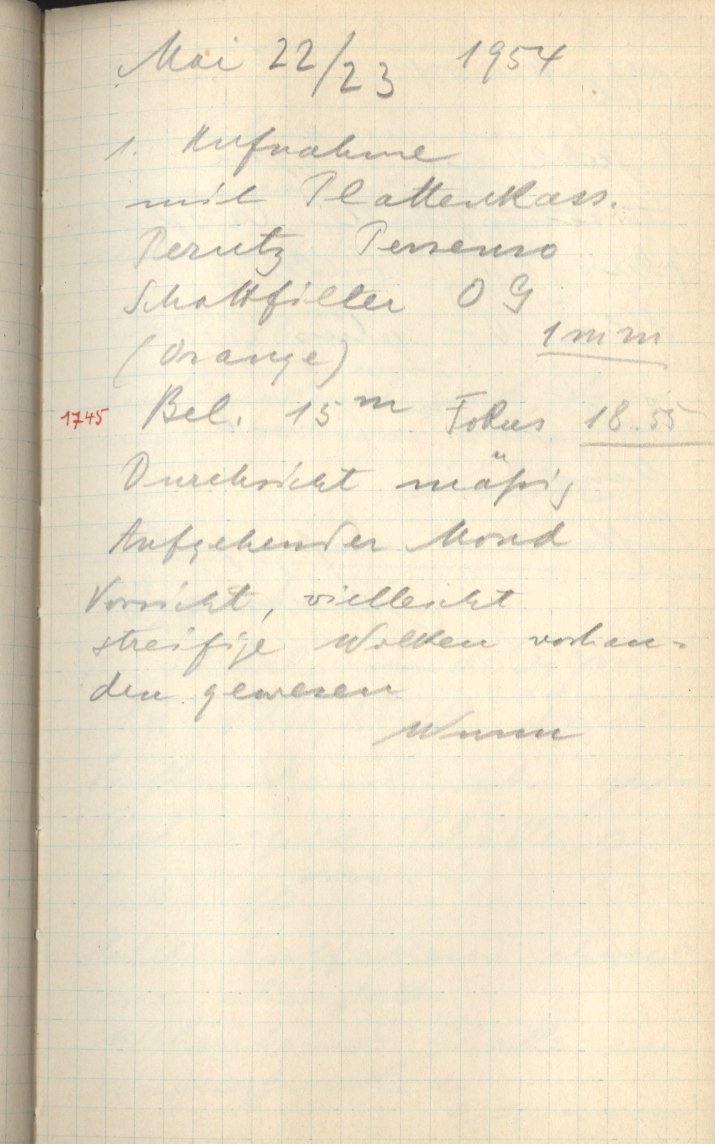 Mai 22/23 1954
1. Aufnahme
mit Plattenkass.
Perutz Persenso
Schottfilter OG
1mm
(Orange)
1745 Bel. 15 m Fokus 18.55
Durchsicht mäßig
Aufgehender Mond
Vorsicht, vielleicht
streifige Wolken vorhan-
den gewesen